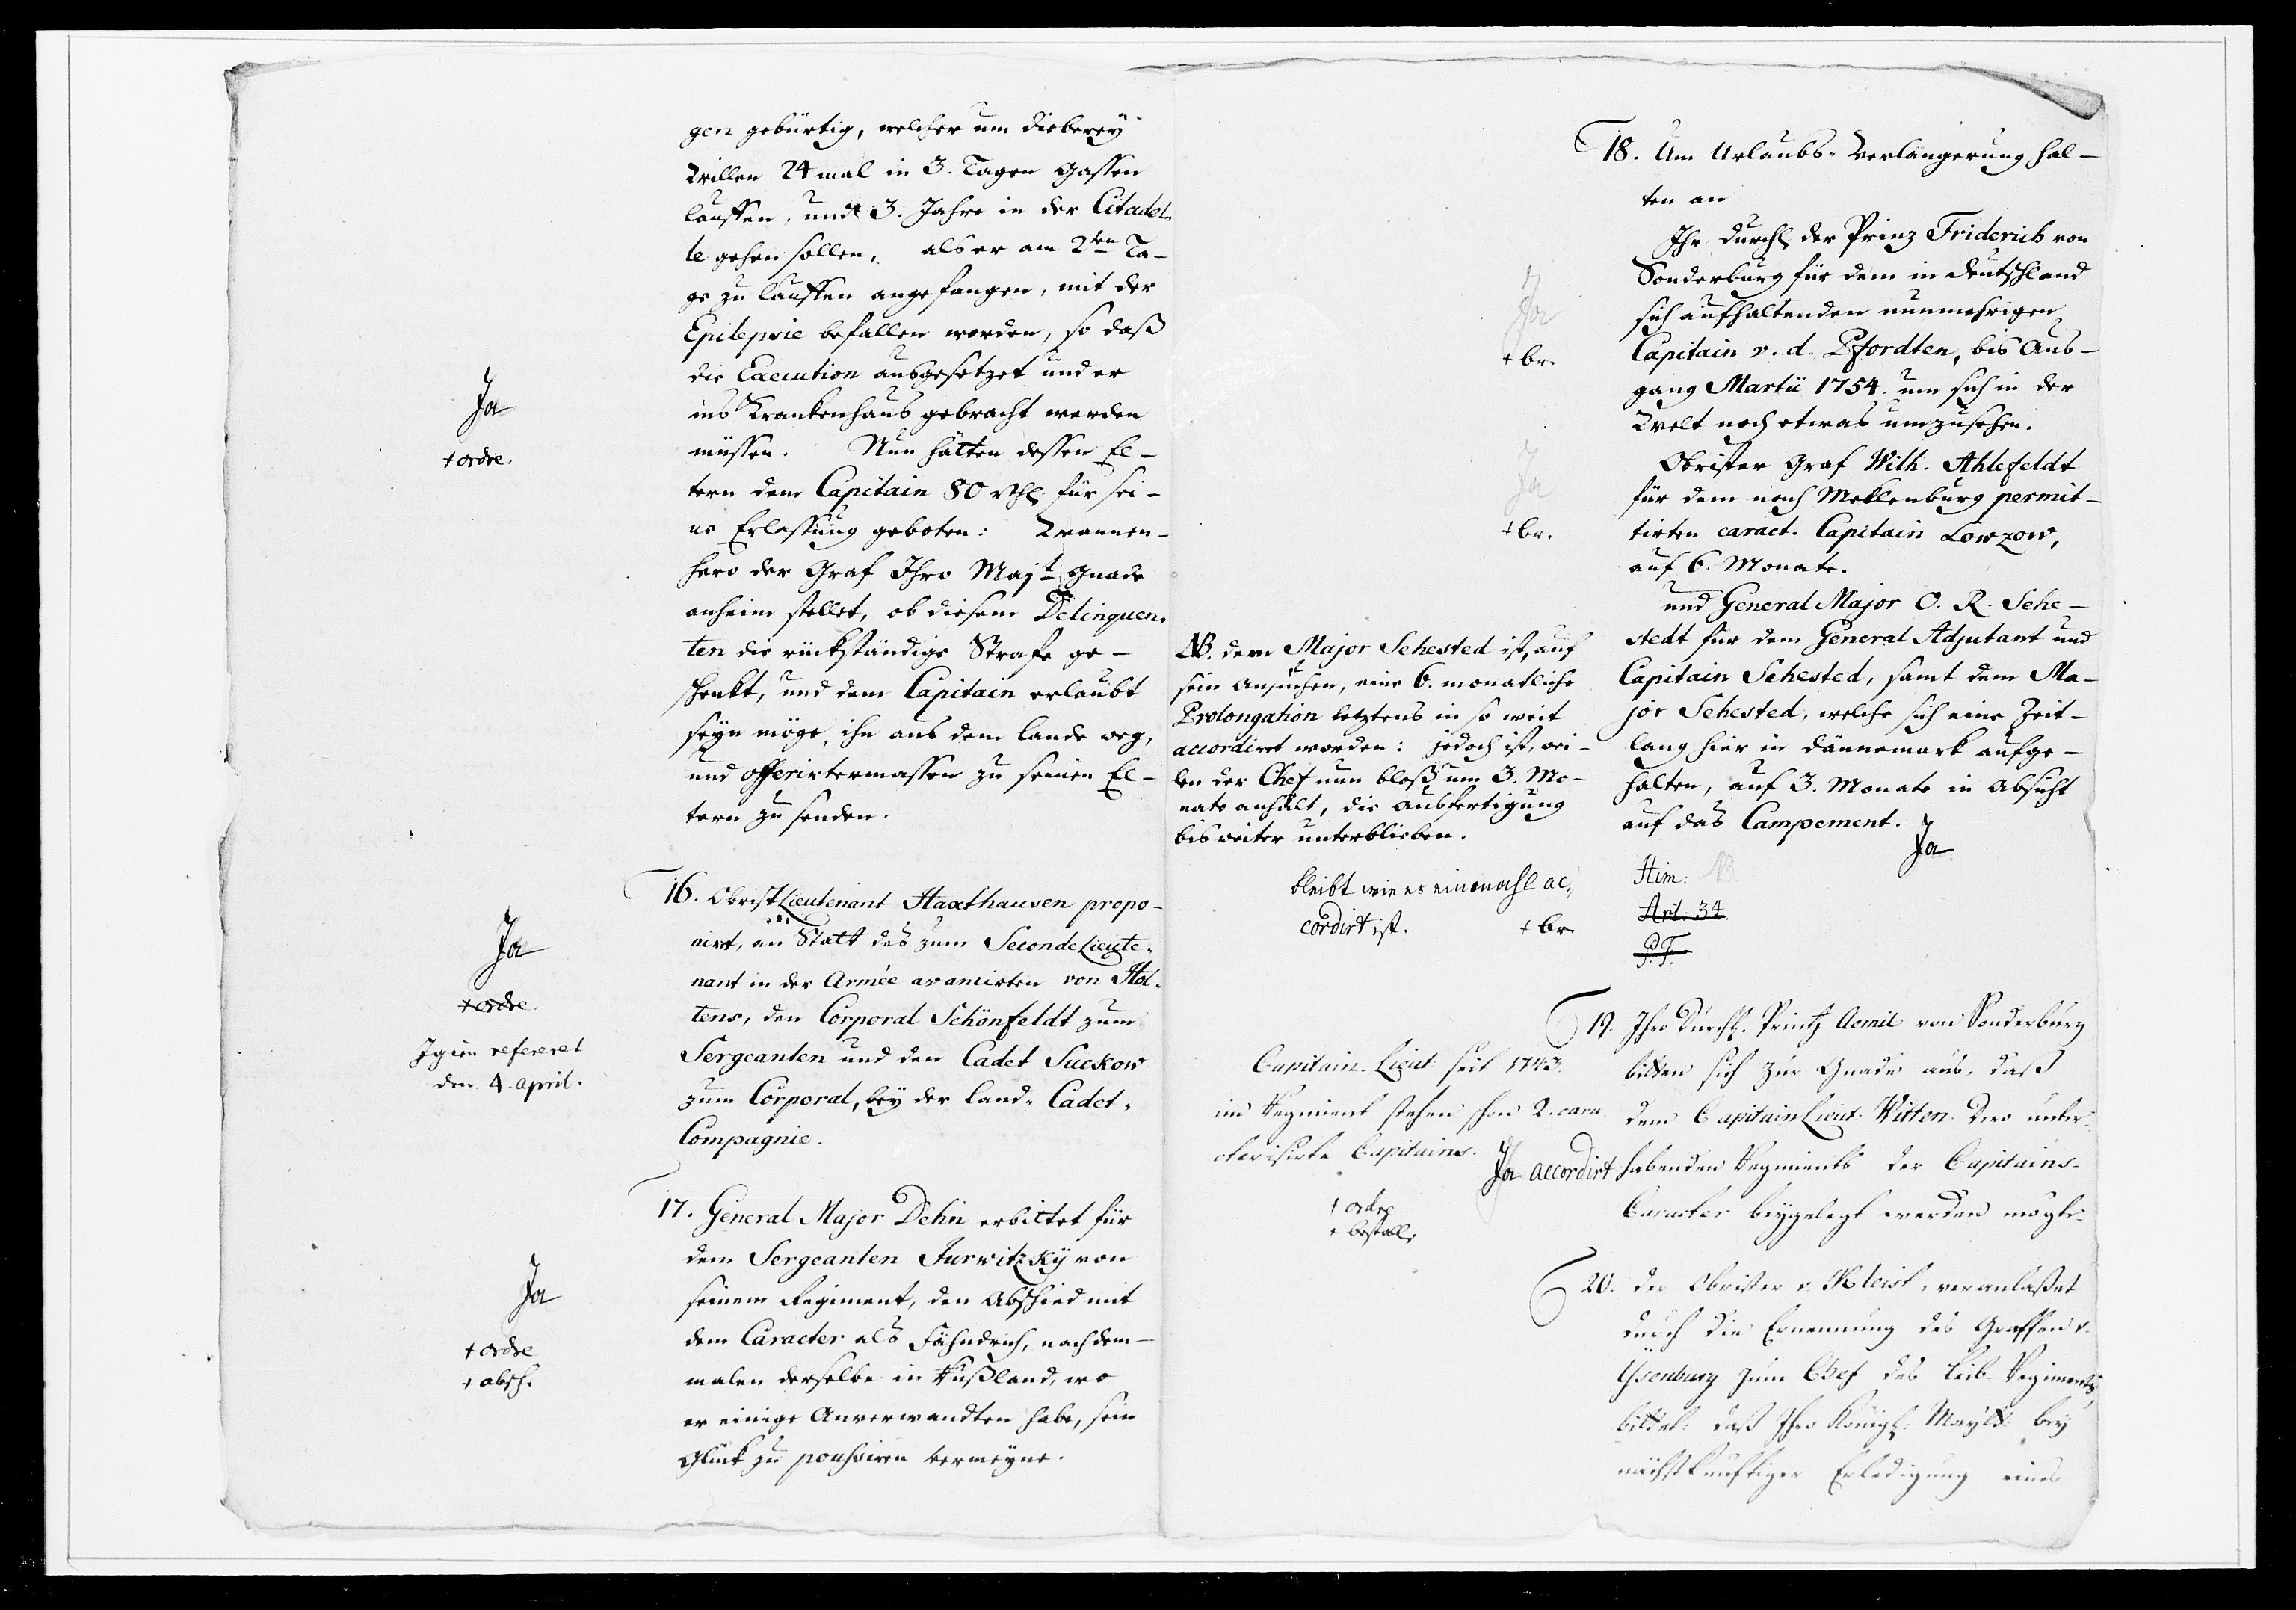 gen gebürtig, welcher um dieberey
Willen 24 mal in 3. Tagen Gassen
lauffen, und 3. Jahre in der Citadel-
le gehen sollen, als er am 2ten Ta-
ge zu lauffen angefangen, mit der
Epilepsie befallen worden, so daß
die Execution ausgesetzet und er
ins Krankenhaus gebracht werden
müssen. Nun hätten dessen El-
tern dem Capitain 80 rthl für sei-
ne Erlassung geboten: Wannen-
hero der Graf Ihro Majt Gnade
anheim stellet, ob diesem Delinquen-
ten die rückständige Strafe ge-
schenkt, und dem Capitain erlaubt
seyn möge, ihn aus dem lande weg,
und offerirtermassen zu seinen El-
tern zu senden.
Ja
+ ordre.
16. ObristLieutenant Haxthausen propo-
nirt, an Statt des zum SecondeLieute-
nant in der Armée avancirten von Hol-
tens, den Corporal Schönfeldt zum
Sergeanten und den Cadet Suckow
zum Corporal, bey der Land-Cadet-
Compagnie.
Ja
+ ordre.
Igien refereret
den 4. april.
17. General Major Dehn erbittet für
dem Sergeanten Jurwitzky von
seinem Regiment, den Abschied mit
dem Caracter als Fähndrich, nachdem-
malen derselbe in Rußland, wo
er einige Anverwandten habe, sein
Glück zu poussiren vermeyne.
Ja
+ ordre
+ absch.
18. Um Urlaubs-Verlängerung hal-
ten an
Ihr Durchl der Prinz Friderich von
Sonderburg für dem in Deutschland
sich aufhaltenden nunmehrigen
Capitain v. d. Pfordten, bis Aus-
gang Martii 1754. um sich in der
Welt noch etwas umzusehen.
Ja
+ br.
Obrister Graf Wilh. Ahlefeldt
für dem nach Meklenburg permit-
tirten caract. Capitain Lowzow,
auf 6. Monate.
Ja
+ br.
und General Major O. R. Sehe-
stedt für dem General Adjutant und
Capitain Sehested, samt dem Ma-
jor Sehested, welche sich eine Zeit-
lang hier in Dännemark aufge-
halten, auf 3. Monate in Absicht
auf das Campement.
Ja
Him: NB
Art. 34
P. T.
NB. dem Major Sehested ist, auf
sein Ansuchen, eine 6. monatliche
Prolongation letztens in so weit
accordiret worden: jedoch ist, wei-
len der Chef nun bloß um 3. Mo-
nate anhält, die Ausfertigung
bis weiter unterblieben.
bleibt wie es einmahl ac,
cordirt ist. + br
19. Ihro Durchl. Printz Aemil von Sonderburg
bitten sich zur Gnade aus, daß
dem CapitainLieut. Witten Dero unter-
habenden Regiments der Capitains-
Caracter beygelegt werden mögte.
Capitain-Lieut seit 1743.
im Regiment stehen schon 2. cara
cterisirte Capitains.
Ja accordirt
+ ordre
+ bestall.
20. der Obrister v. Kleist, veranlaßet
durch die Ernennung des Graffen v.
Ysenburg zum Chef des Leib-Regiments,
bittet: daß Ihro Königl. Mayt. bey
nächstkünftiger Erledigung eines